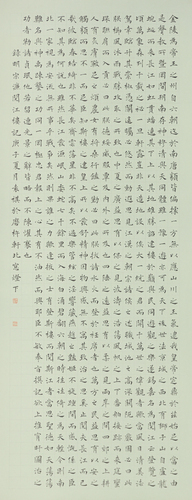 金陵為帝王之州自六朝迄於南唐類皆偏據一方無以應山川之王氣逮我皇帝定鼎於茲始足以當之由
是聲教所暨罔間朔南存神穆清與天同體雖一豫一遊亦可為天下後世法京城之西北有獅子山自盧龍
蜿蜒而來長江如虹貫蟠繞其下上以其地雄勝詔建樓於巔與民同遊觀之樂遂錫嘉名為閱江云登覽之
頃萬象森列千載之秘一旦軒露豈非天造地設以俟大一統之君而開千萬世之偉觀者歟當風日清美法
駕幸臨升其崇椒憑闌遙矚必悠然而動遐思見江漢之朝宗諸侯之述職城池之高深關阨之嚴固必曰此朕
櫛風沐雨戰勝攻取之所致也中夏之廣益思有以保之見波濤之浩蕩風帆之上下番舶接跡而來庭蠻
琛聯肩而入貢必曰此朕德綏威服覃及內外之所及也四陲之遠益思有以柔之見兩岸之間四郊之上耕
人有炙膚皸足之煩農女有捋桑行饁之勤必曰此朕拔諸水火而登於衽席者也萬方之民益思有以安之
觸類而思不一而足臣知斯樓之建皇上所以發舒精神因物興感無不寓其致治之思奚止閱夫長江而已
哉彼臨春結綺非不華矣齊雲落星非不高矣不過樂管弦之淫響藏燕趙之艷姬一旋踵間而感慨係之臣
不知其為何說也雖然長江發源岷山委蛇七千餘里而始入海白湧碧翻六朝之時往往倚之為天塹今則南
北一家視為安流無所事乎戰爭矣然則果誰之力歟逢掖之士有登斯樓而閱斯江者當思帝德如天蕩蕩
難名與神禹疏鑿之功同一罔極忠君報上之心其有不油然而興者耶臣不敏奉旨撰記欲上推宵旰圖治之
功者勒諸貞珉他若留連光景之辭皆略而不陳懼褻也
錄明宋濂閱江樓記 月 於 軒北窗燈下